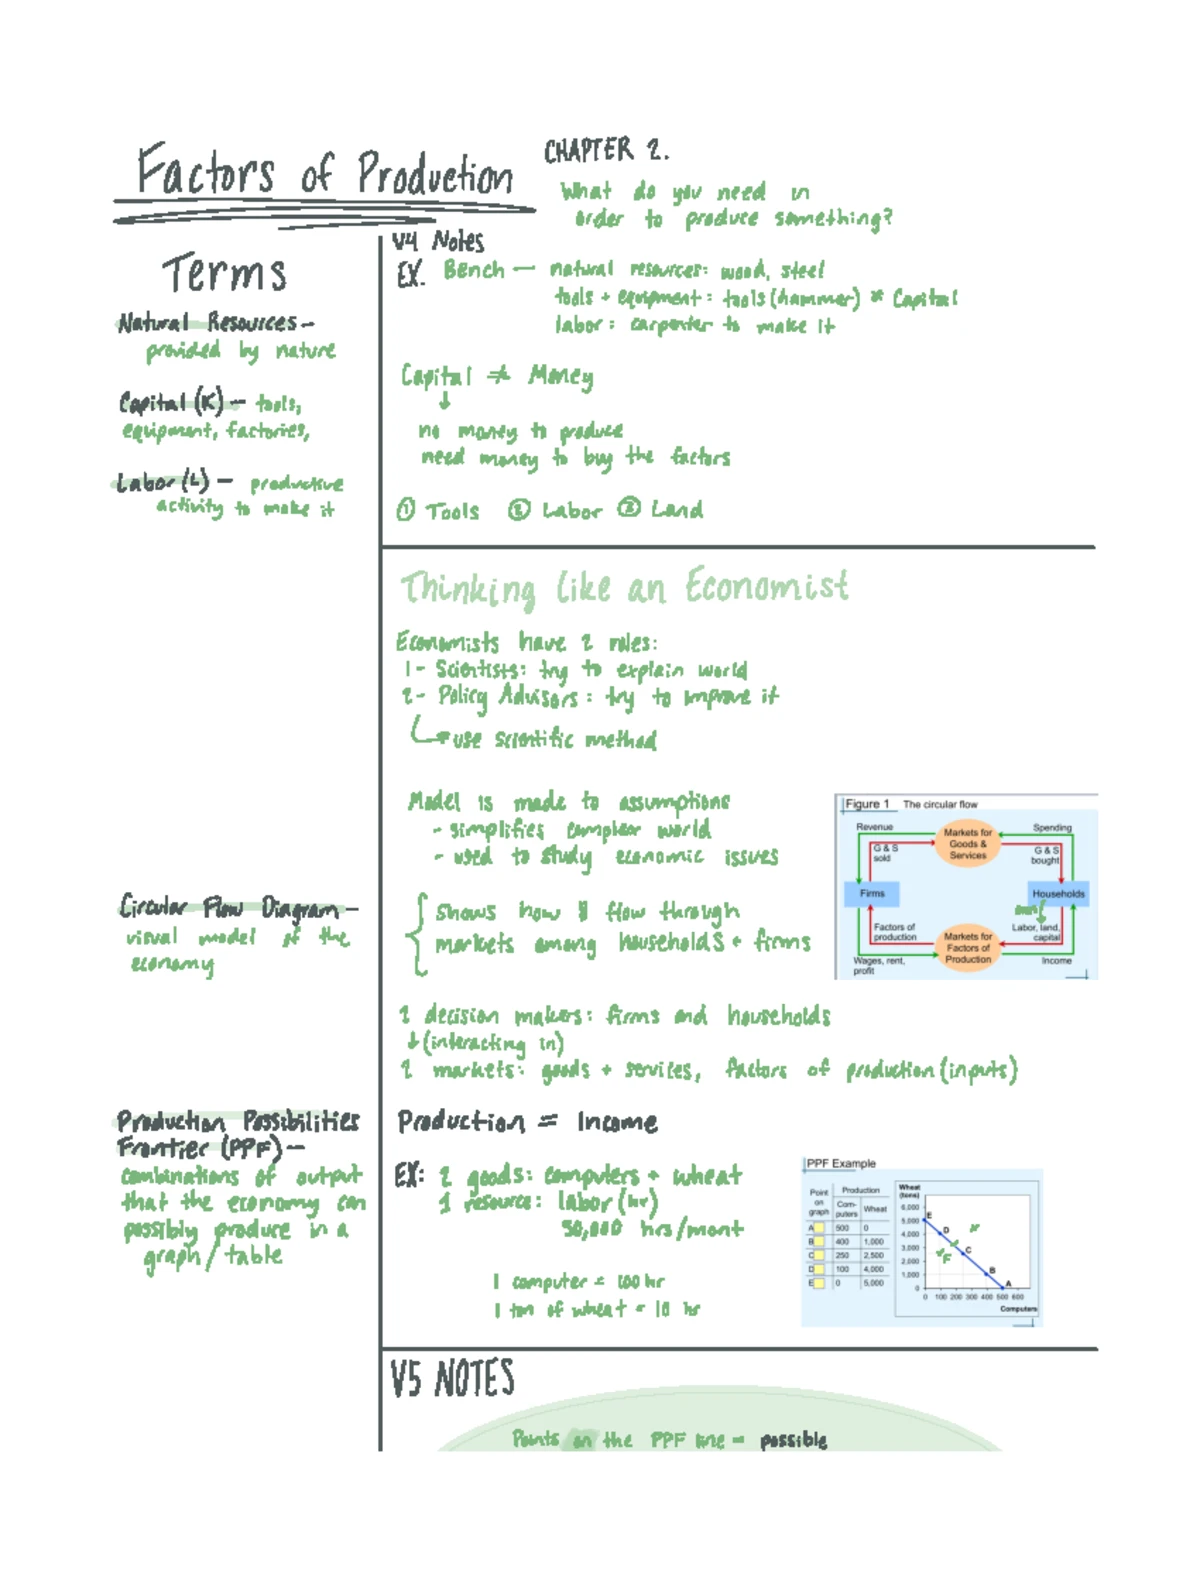 Factors of Production
CHAPTER 2.
What do you need in
order to produce something?
Terms
Natural Resources-
provided by nature
Capital (K) - tools,
equipment, factories,
Labor (L) - productive
activity to make it
V4 Notes
EX. Bench — natural resources: wood, steel
tools + equipment: tools (hammer) * Capital
labor: carpenter to make it
Capital ≠ Money
↓
no money to produce
need money to buy the factors
① Tools ② Labor ③ Land
Thinking like an Economist
Economists have 2 roles:
1- Scientists: try to explain world
2- Policy Advisors: try to improve it
use scientific method
Model is made to assumptions
- simplifies complex world
- used to study economic issues
Figure 1 The circular flow
Revenue
Markets for
Goods &
Services
Spending
G & S
sold
G & S
bought
Firms
Households
own
Factors of
production
Markets for
Factors of
Production
Labor, land,
capital
Wages, rent,
profit
Income
Circular Flow Diagram-
visual model of the
economy
shows how $ flow through
markets among households + firms
2 decision makers: firms and households
↓ (interacting in)
2 markets: goods + services, factors of production (inputs)
Production Possibilities
Frontier (PPF)-
combinations of output
that the economy can
possibly produce in a
graph / table
Production = Income
EX: 2 goods: computers + wheat
1 resource: labor (hr)
50,000 hrs/mont
1 computer = 100 hr
1 ton of wheat = 10 hr
PPF Example
Point
on
graph
Production
Com-
puters
Wheat
A 500 0
B 400 1,000
C 250 2,500
D 100 4,000
E 0 5,000
Wheat
(tons)
6,000
5,000
4,000
3,000
2,000
1,000
0
E
D
C
F
B
A
0 100 200 300 400 500 600
Computers
V5 NOTES
Points on the PPF line = possible